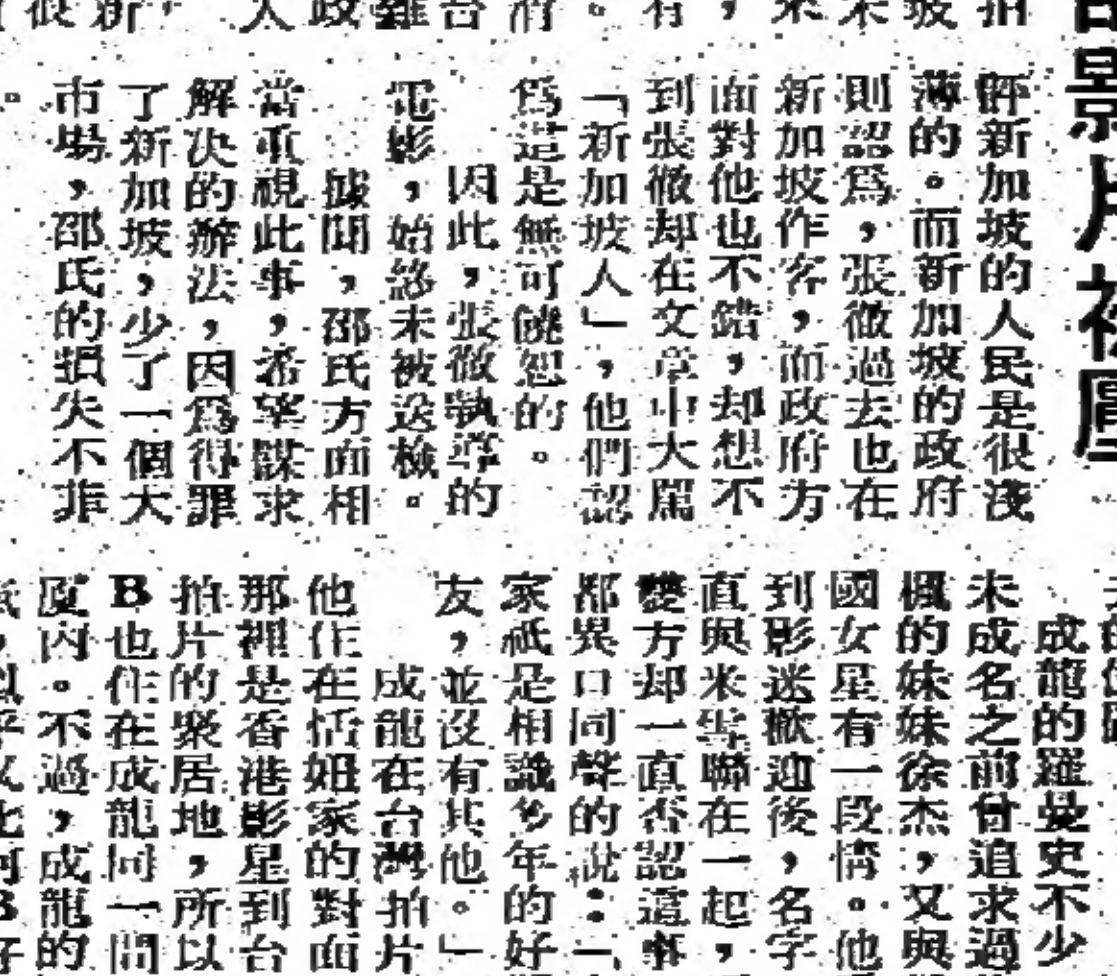 的影片被壓
評新加坡的人民是很淺
薄的。而新加坡的政府
則認爲,張徹過去也在
新加坡作客,而政府方
面對他也不錯,却想不
到張徹却在文章中大罵
「新加坡人」,他們認
爲這是無可饒恕的。
因此,張徹執導的
電影,始終未被送檢。
據聞,邵氏方面相
當重視此事,希望謀求
解決的辦法,因爲得罪
了新加坡,少了一個大
市場,邵氏的損失不菲
。
成龍的羅曼史不少
未成名之前曾追求過
楓的妹妹徐杰,又與
國女星有一段情。他
到影迷歡迎後,名字
直與米雪聯在一起,
雙方却一直否認這事
都異口同聲的說:「
家祇是相識多年的好
友,並沒有其他。」
成龍在台灣拍片
他住在恬妞家的對面
那裡是香港影星到台
拍片的聚居地,所以
B也住在成龍同一間
厦内。不過,成龍的